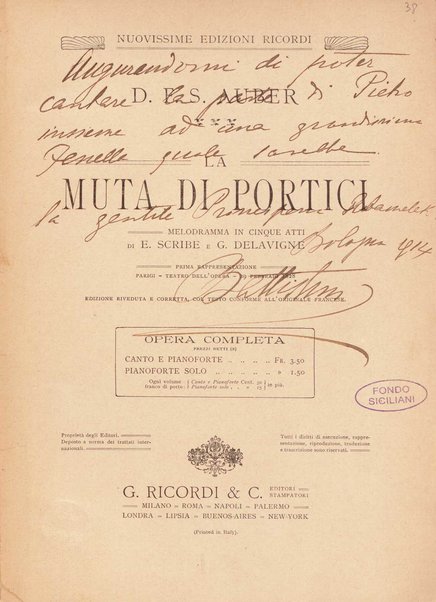 38
NUOVISSIME EDIZIONI RICORDI
Augurandomi di poter
cantare la parte di Pietro
D. F. S. AUBER
insieme ad una grandissima
Fenella quale sarebbe
LA
MUTA DI PORTICI
la gentile Principessa
MELODRAMMA IN CINQUE ATTI
DI E. SCRIBE E G. DELAVIGNE
Bologna 1914
PRIMA RAPPRESENTAZIONE
PARIGI = TEATRO DELL'OPERA = FEBBRAIO
EDIZIONE RIVEDUTA E CORRETTA, COL TESTO CONFORME ALL'ORIGINALE FRANCESE.
OPERA COMPLETA
PREZZI NETTI [B]
CANTO E PIANOFORTE . . . . FR. 3.50
PIANOFORTE SOLO . . . . . . » 1.50
Ogni volume franco di porto: { Canto e Pianoforte Cent. 30 } in più.
{ Pianoforte solo . . » 15 }
FONDO
SICILIANI
Proprietà degli Editori.
Deposto a norma dei trattati inter-
nazionali.
Tutti i diritti di esecuzione, rappre-
sentazione, riproduzione, traduzione
e trascrizione sono riservati.
G. RICORDI & C. EDITORI STAMPATORI
MILANO = ROMA = NAPOLI = PALERMO
LONDRA = LIPSIA = BUENOS-AIRES = NEW-YORK
(Printed in Italy).